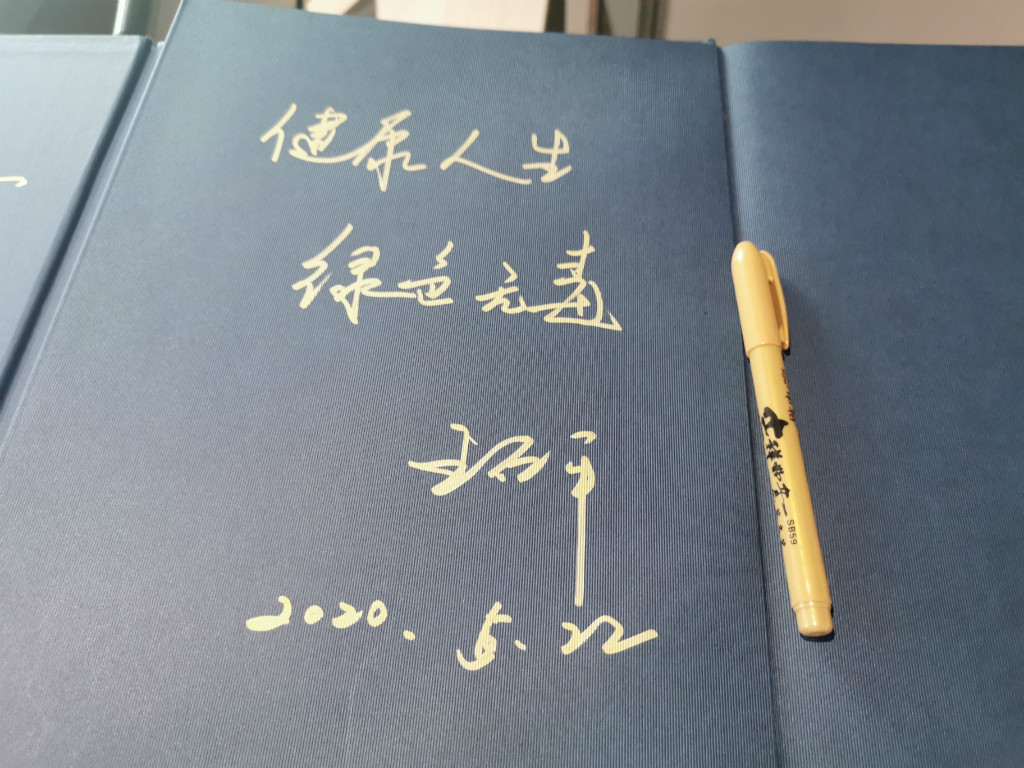 健康人生
绿色元素
2020.5.22
SB59